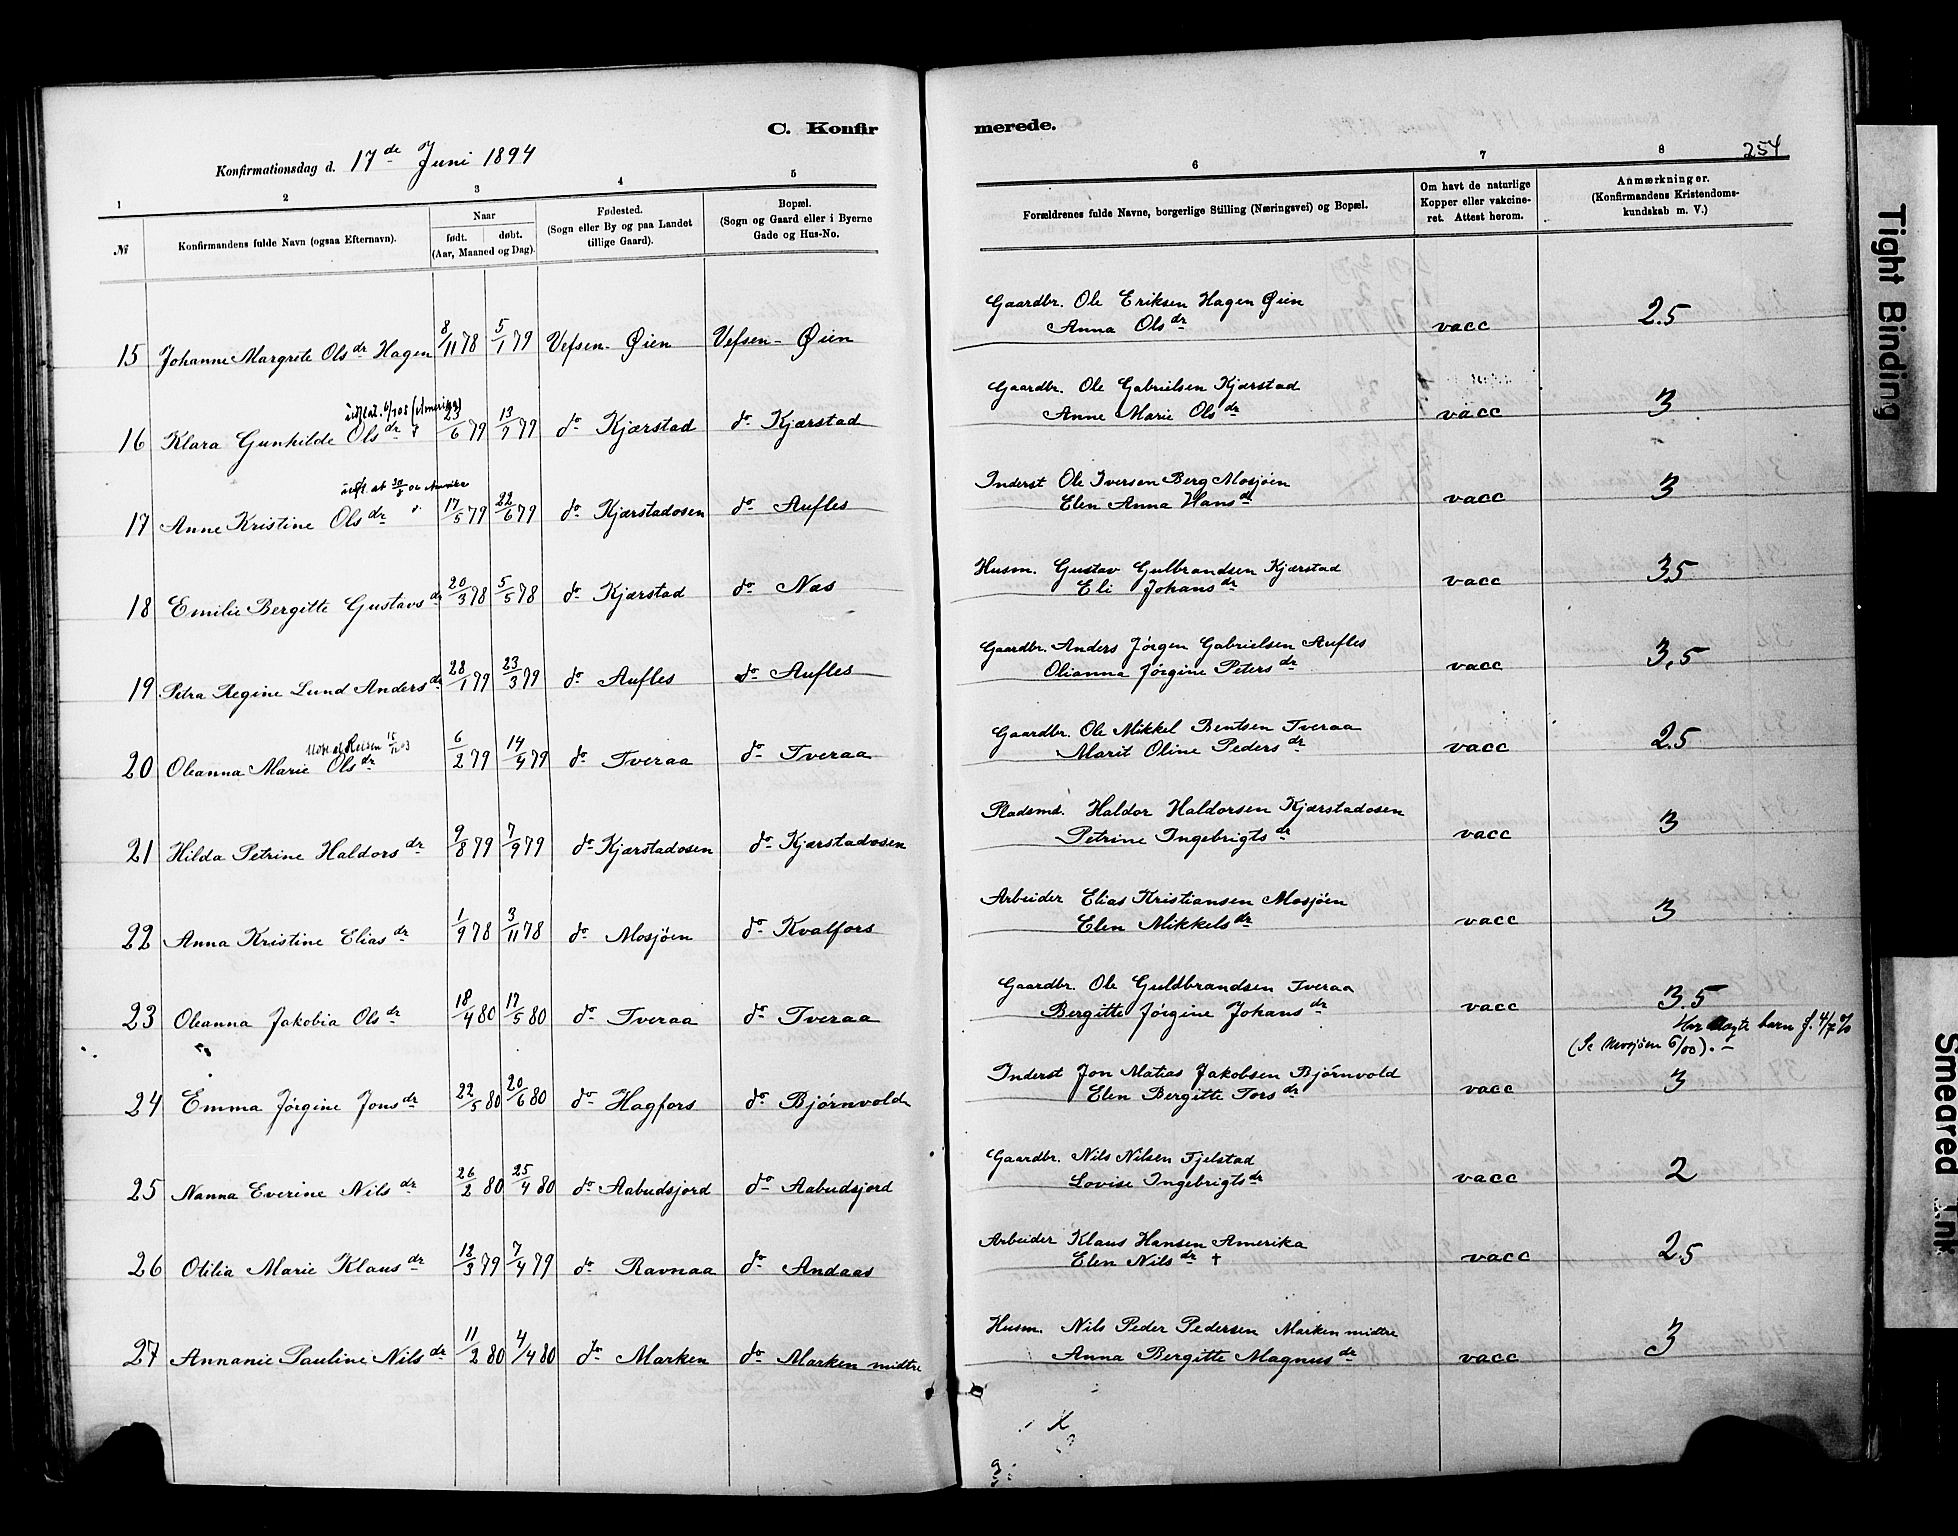 C. Konfirmerede.
254
Konfirmationsdag d. 17de Juni 1894
1 2 3 4 5 6 7 8
№
Konfirmandens fulde Navn (ogsaa Efternavn).
Naar
født. døbt.
(Aar, Maaned og Dag).
Fødested.
(Sogn eller By og paa Landet
tillige Gaard).
Bopæl.
(Sogn og Gaard eller i Byerne
Gade og Hus-No.
Forældrenes fulde Navne, borgerlige Stilling (Næringsvei) og Bopæl.
Om havt de naturlige
Kopper eller vakcine-
ret. Attest herom.
Anmærkninger.
(Konfirmandens Kristendoms-
kundskab m. V.)
15 Johanne Margrete Olsdr Hagen 8/11 78 5/1 79 Vefsen - Øien Vefsen - Øien Gaardbr. Ole Eriksen Hagen Øien vacc 2.5
Anna Olsdr
16 Klara Gunhilde Olsdr 23/6 79 13/7 79 do Kjærstad do Kjærstad Gaardbr. Ole Gabrielsen Kjærstad vacc 3
Anne Marie Olsdr
17 Anne Kristine Olsdr 17/5 79 22/6 79 do Kjærstadosen do Aufles Inderst Ole Iversen Berg Mosjøen vacc 3
Elen Anna Hansd
18 Emilie Bergitte Gustavsdr 20/3 78 5/5 78 do Kjærstad do Næs Husm. Gustav Gulbrandsen Kjærstad vacc 3.5
Eli Johansdr
19 Petra Regine Lund Andersdr 28/1 79 23/3 79 do Aufles do Aufles Gaardbr. Anders Jørgen Gabrielsen Aufles vacc 3,5
Olianna Jørgine Petersdr
20 Oleanna Marie Olsdr 6/2 79 14/4 79 do Tveraa do Tveraa Gaardbr. Ole Mikkel Bentsen Tveraa vacc 2.5
Marit Oline Pedersdr
21 Hilda Petrine Haldorsdr 9/8 79 7/9 79 do Kjærstadosen do Kjærstadosen Pladsmd. Haldor Haldorsen Kjærstadosen vacc 3
Petrine Ingebrigtsdr
22 Anna Kristine Eliasdr 1/9 78 3/11 78 do Mosjøen do Kvalfors Arbeider Elias Kristiansen Mosjøen vacc 3
Elen Mikkelsdr
23 Oleanna Jakobia Olsdr 18/4 80 17/5 80 do Tveraa do Tveraa Gaardbr. Ole Guldbrandsen Tveraa vacc 3.5
Bergitte Jørgine Johansdr
barn f. 4/7
(Se Mosjøen 6/00). -
24 Emma Jørgine Jonsdr 22/5 80 20/6 80 do Hagfors do Bjørnvold Inderst Jon Matias Jakobsen Bjørnvold vacc 3
Elen Bergitte Torsdr
25 Nanna Everine Nilsdr 26/2 80 25/4 80 do Aabudsjord do Aabudsjord Gaardbr. Nils Nilsen Fjelstad vacc 2
Lovise Ingebrigtsdr
26 Otilia Marie Klausdr 12/3 79 7/4 79 do Ravnaa do Andaas Arbeider Klaus Hansen Amerika vacc 2.5
Elen Nilsdr †
27 Annanie Pauline Nilsdr 11/2 80 4/4 80 do Marken do Marken midtre Husm. Nils Peder Pedersen Marken midtre vacc 3
Anna Bergitte Magnusdr
Tight Binding
Smeared Ink